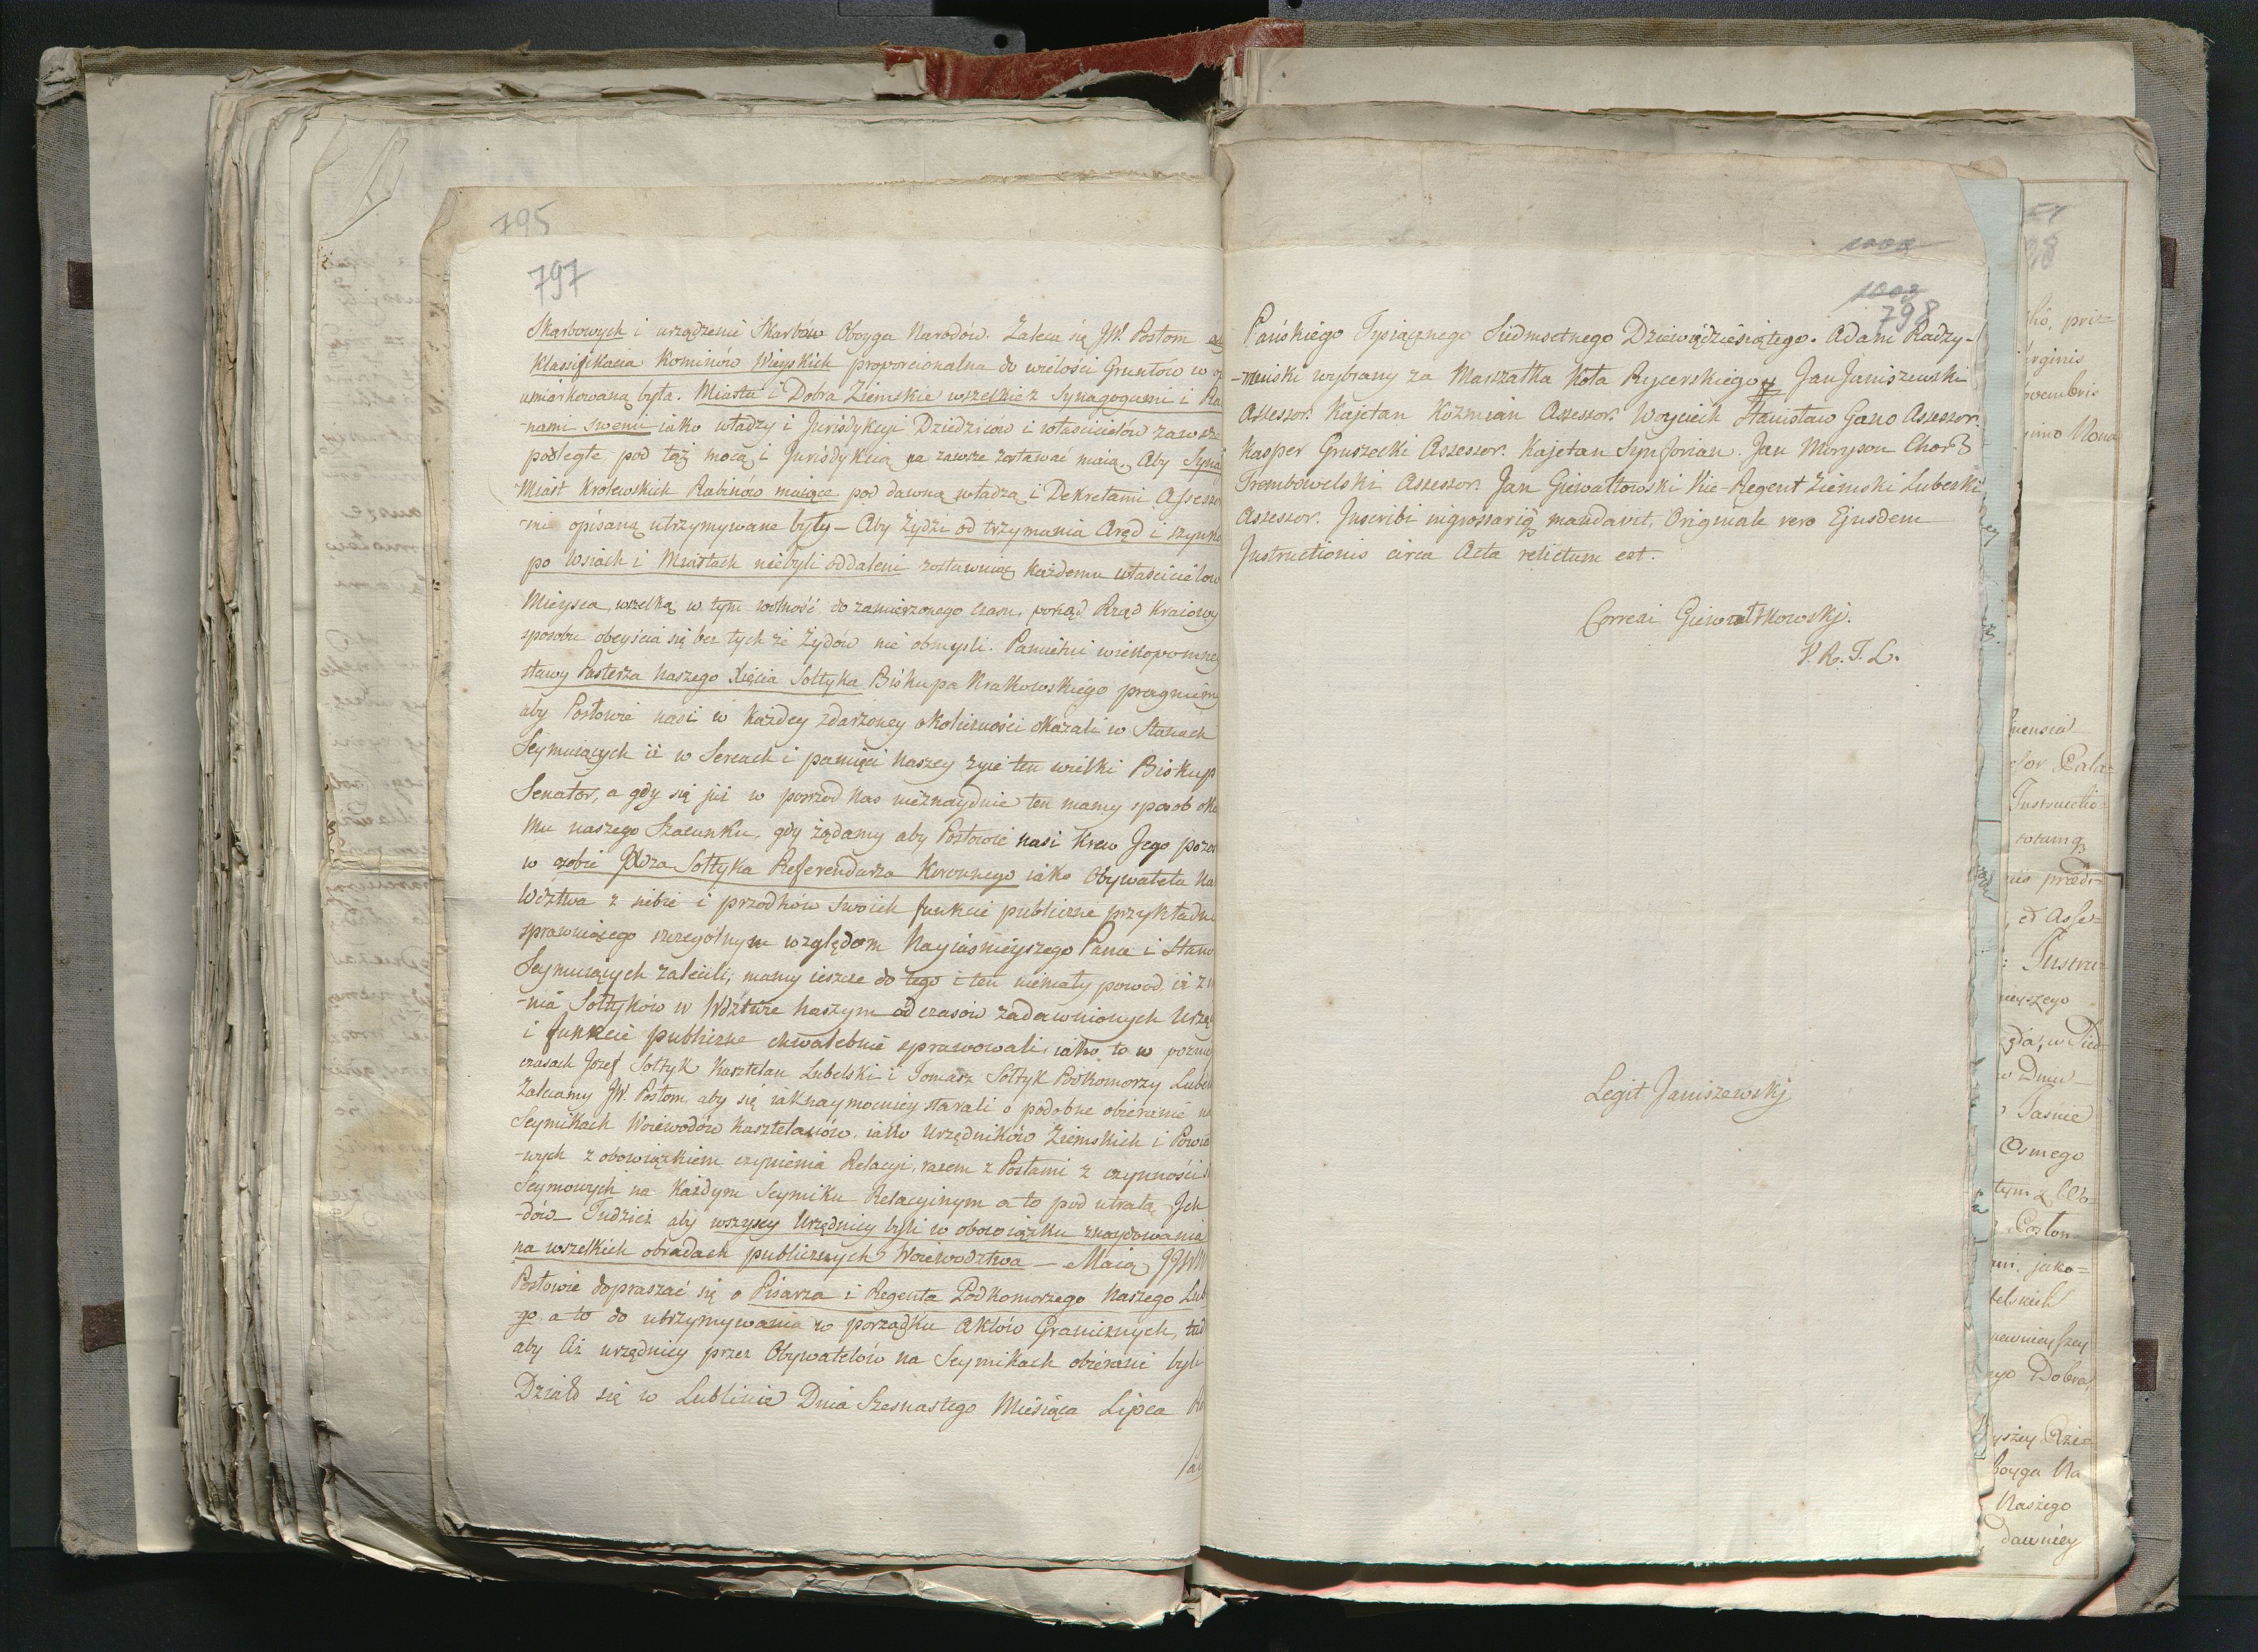 795
797
Skarbowych i urządzenie Skarbów Oboyga Narodów. Zaleca się JW. Posłom
klassifikacia Kominów Wieyskich proporcionalna do wielości Gruntów w
umiarkowaną była. Miasta i Dobra Ziemskie wszelkie z Synagogami i Ra
-nami swemi iako władzy i Jurisdykcyi Dziedziców i właścicielów zawsze
podległe, pod tąż mocą i Jurisdykcią na zawsze zostawać maią, Aby Syna
Miast Krolewskich Rabinów maiące pod dawną władzą i Dekretami Assesso
-mi opisaną utrzymywane były – Aby Żydzi od trzymania Aręd i szynk
po Wsiach i Miastach niebyli oddaleni zostawuiąc każdemu właścicielow
Mieysca, wszelką w tym wolność do zamierzonego czasu, pokąd Rząd Kraiowy
sposobu obeyścia się bez tych że Żydów nie obmysli. Pamiętni wiekopomney
sławy Pasterza Naszego Xięcia Sołtyka Biskupa Krakowskiego pragniem
aby Posłowie nasi w każdey zdarzoney okoliczności okazali w Stanach
Seymuiących iż w Sercach i pamięci Naszey żyie ten wielki Biskup
Senator, a gdy się już w posrzod Nas nieznayduie ten mamy sposob oka
Mu naszego Szacunku, gdy żądamy aby Posłowie nasi Krew Jego pozos
w osobie JXdza Sołtyka Referendarza Koronnego iako Obywatela Na
Wdztwa z siebie i przodków Swoich funkcie publiczne przykładn
sprawuiącego szczególnym względom Nayiasnieyszego Pana i Stano
Seymuiących zalecili; mamy ieszcze do tego i ten niemały powod, iż z
-nia Sołtyków w Wdztwie Naszym od czasów zadawnionych Urzę
i funkcie publiczne chwalebnie sprawowali, iako to w pozni
czasach Józef Sołtyk Kasztelan Lubelski i Tomasz Sołtyk Podkomorzy Lubel
Zalecamy JW. Posłom, aby się iaknaymocniey starali o podobne obieranie na
Seymikach Woiewodów Kasztelanów, iako Urzędników Ziemskich i Powia
-wych z obowiązkiem czynienia Relacyi, razem z Posłami z czynności
Seymowych na Każdym Seymiku Relacyinym a to pod utratą Ich
-dów – Tudzież aby wszyscy Urzędnicy byli w obowiązku znaydowania
na wszelkich obradach publicznych Woiewodztwa – Maią JJWW
Posłowie dopraszać się o Pisarza i Regenta Podkomorzego Naszego Lub
go a to do utrzymywania w porządku Aktów Granicznych, tud
aby Ciż urzędnicy przez Obywatelów na Seymikach obierani byli
Działo się w Lublinie Dnia Szesnastego Miesiąca Lipca Ro
1002
1003
798
Pańskiego Tysiącznego Siedmsetnego Dziewiędziesiątego. Adam Radzy-
-miński wybrany za Marszałka Koła Rycerskiego Jan Janiszewski
Assessor. Kajetan Kozmian Assessor. Woyciech Stanisław Gano Assessor.
Kasper Gruszecki Assessor. Kajetan Symforian. Jan Moryson Chorż
Trembowelski Assessor. Jan Giewałtowski Vice-Regent Ziemski Lubelski
Assessor. Inscribi ingrossariq mandavit, Originale vero Ejusdem
Instructionis circa Acta relictum est.
Correxi Giewałtkowskj.
V. R. T. L.
Legit Janiszewskj